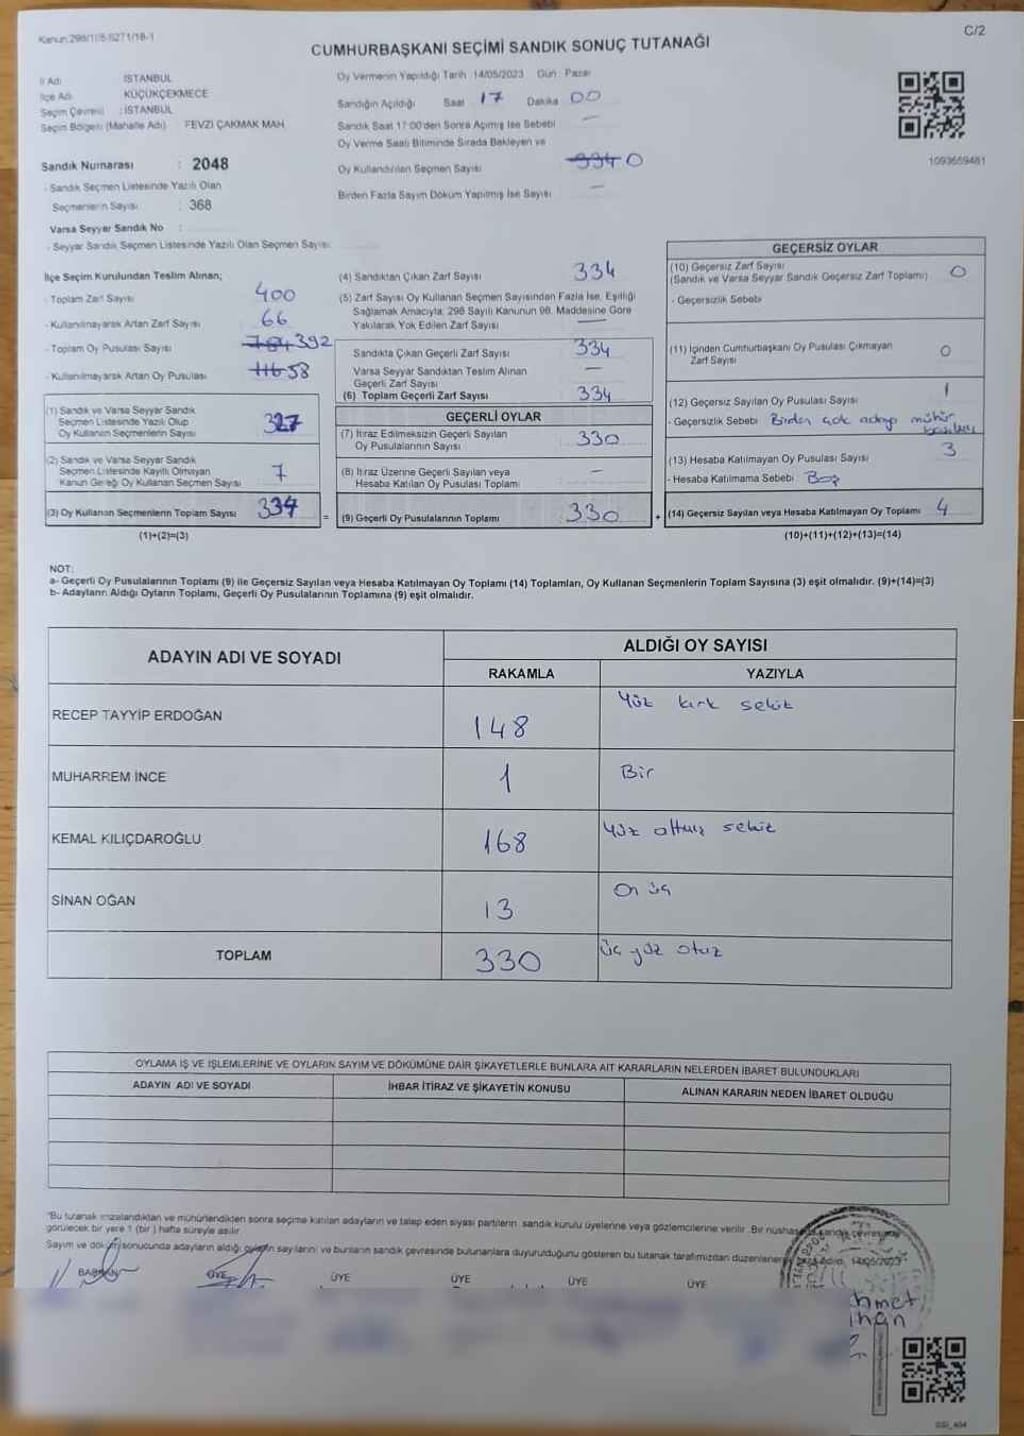 Kanun:298/1/5-5271/18-1
C/2
CUMHURBAŞKANI SEÇİMİ SANDIK SONUÇ TUTANAĞI
İl Adı : İSTANBUL
İlçe Adı : KÜÇÜKÇEKMECE
Seçim Çevresi : İSTANBUL
Seçim Bölgesi (Mahalle Adı) : FEVZİ ÇAKMAK MAH
Sandık Numarası : 2048
- Sandık Seçmen Listesinde Yazılı Olan
Seçmenlerin Sayısı : 368
Varsa Seyyar Sandık No :
- Seyyar Sandık Seçmen Listesinde Yazılı Olan Seçmen Sayısı
Oy Vermenin Yapıldığı Tarih :14/05/2023 Gün : Pazar
Sandığın Açıldığı Saat 17 Dakika 00
Sandık Saat 17:00'den Sonra Açılmış İse Sebebi —
Oy Verme Saati Bitiminde Sırada Bekleyen ve
Oy Kullandırılan Seçmen Sayısı 334 0
Birden Fazla Sayım Döküm Yapılmış İse Sayısı —
1093659481
İlçe Seçim Kurulundan Teslim Alınan;
- Toplam Zarf Sayısı 400
- Kullanılmayarak Artan Zarf Sayısı 66
- Toplam Oy Pusulası Sayısı 784 392
- Kullanılmayarak Artan Oy Pusulası 116 58
(1) Sandık ve Varsa Seyyar Sandık
Seçmen Listesinde Yazılı Olup
Oy Kullanan Seçmenlerin Sayısı 327
(2) Sandık ve Varsa Seyyar Sandık
Seçmen Listesinde Kayıtlı Olmayan
Kanun Gereği Oy Kullanan Seçmen Sayısı 7
(3) Oy Kullanan Seçmenlerin Toplam Sayısı 334 =
(1)+(2)=(3)
(4) Sandıktan Çıkan Zarf Sayısı 334
(5) Zarf Sayısı Oy Kullanan Seçmen Sayısından Fazla İse, Eşitliği
Sağlamak Amacıyla; 298 Sayılı Kanunun 98. Maddesine Göre
Yakılarak Yok Edilen Zarf Sayısı —
Sandıkta Çıkan Geçerli Zarf Sayısı 334
Varsa Seyyar Sandıktan Teslim Alınan
Geçerli Zarf Sayısı —
(6) Toplam Geçerli Zarf Sayısı 334
GEÇERLİ OYLAR
(7) İtiraz Edilmeksizin Geçerli Sayılan
Oy Pusulalarının Sayısı 330
(8) İtiraz Üzerine Geçerli Sayılan veya
Hesaba Katılan Oy Pusulası Toplamı —
(9) Geçerli Oy Pusulalarının Toplamı 330 +
GEÇERSİZ OYLAR
(10) Geçersiz Zarf Sayısı
(Sandık ve Varsa Seyyar Sandık Geçersiz Zarf Toplamı) 0
- Geçersizlik Sebebi
(11) İçinden Cumhurbaşkanı Oy Pusulası Çıkmayan
Zarf Sayısı 0
(12) Geçersiz Sayılan Oy Pusulası Sayısı 1
- Geçersizlik Sebebi Birden çok adaya mühür
(13) Hesaba Katılmayan Oy Pusulası Sayısı 3
- Hesaba Katılmama Sebebi Boş
(14) Geçersiz Sayılan veya Hesaba Katılmayan Oy Toplamı 4
(10)+(11)+(12)+(13)=(14)
NOT:
a- Geçerli Oy Pusulalarının Toplamı (9) ile Geçersiz Sayılan veya Hesaba Katılmayan Oy Toplamı (14) Toplamları, Oy Kullanan Seçmenlerin Toplam Sayısına (3) eşit olmalıdır. (9)+(14)=(3)
b- Adayların Aldığı Oyların Toplamı, Geçerli Oy Pusulalarının Toplamına (9) eşit olmalıdır.
ADAYIN ADI VE SOYADI
ALDIĞI OY SAYISI
RAKAMLA YAZIYLA
RECEP TAYYİP ERDOĞAN 148 Yüz kırk sekiz
MUHARREM İNCE 1 Bir
KEMAL KILIÇDAROĞLU 168 Yüz altmış sekiz
SİNAN OĞAN 13 On üç
TOPLAM 330 üç yüz otuz
OYLAMA İŞ VE İŞLEMLERİNE VE OYLARIN SAYIM VE DÖKÜMÜNE DAİR ŞİKAYETLERLE BUNLARA AİT KARARLARIN NELERDEN İBARET BULUNDUKLARI
ADAYIN ADI VE SOYADI İHBAR İTİRAZ VE ŞİKAYETİN KONUSU ALINAN KARARIN NEDEN İBARET OLDUĞU
"Bu tutanak imzalandıktan ve mühürlendikten sonra seçime katılan adayların ve talep eden siyasi partilerin sandık kurulu üyelerine veya gözlemcilerine verilir. Bir nüshası
görülecek bir yere 1 (bir ) hafta süreyle asılır
Sayım ve döküm sonucunda adayların aldığı oyların sayılarını ve bunların sandık çevresinde bulunanlara duyurulduğunu gösteren bu tutanak tarafımızdan 14/05/2023
BAŞKAN ÜYE ÜYE ÜYE ÜYE ÜYE